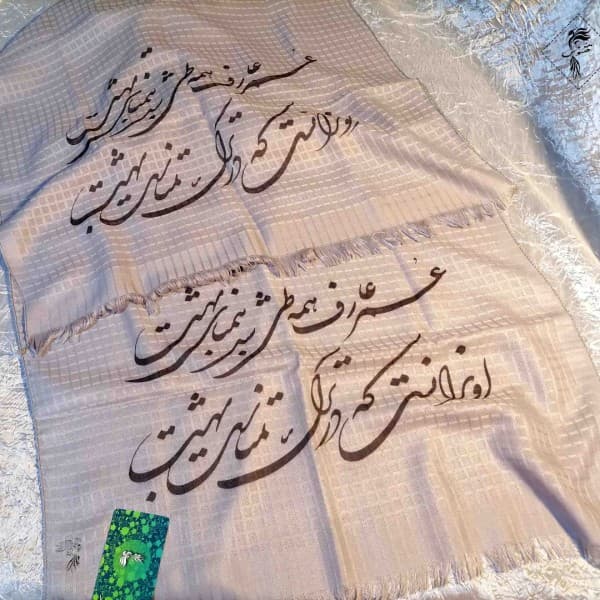 عمر عارف همه طی شد به تمنای بهشت
او ندانست که در ترک تمناست بهشت
عمر عارف همه طی شد به تمنای بهشت
او ندانست که در ترک تمناست بهشت